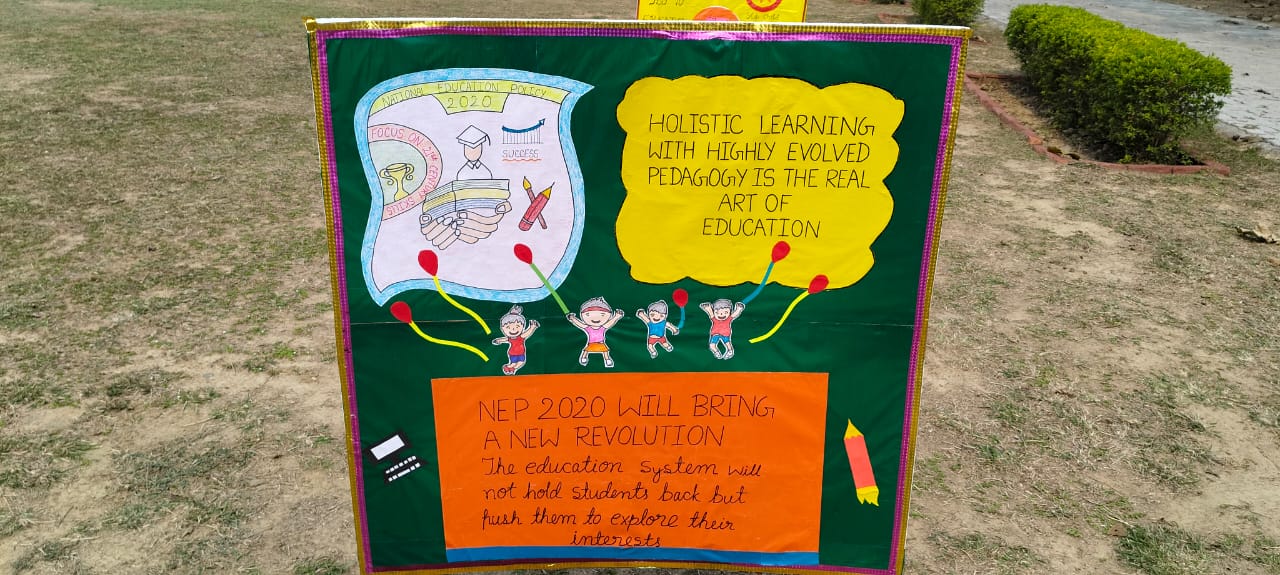 NATIONAL EDUCATION POLICY
2020
FOCUS ON 21ST CENTURY SKILLS
SUCCESS
HOLISTIC LEARNING
WITH HIGHLY EVOLVED
PEDAGOGY IS THE REAL
ART OF
EDUCATION
NEP 2020 WILL BRING
A NEW REVOLUTION
The education system will
not hold students back but
push them to explore their
interests